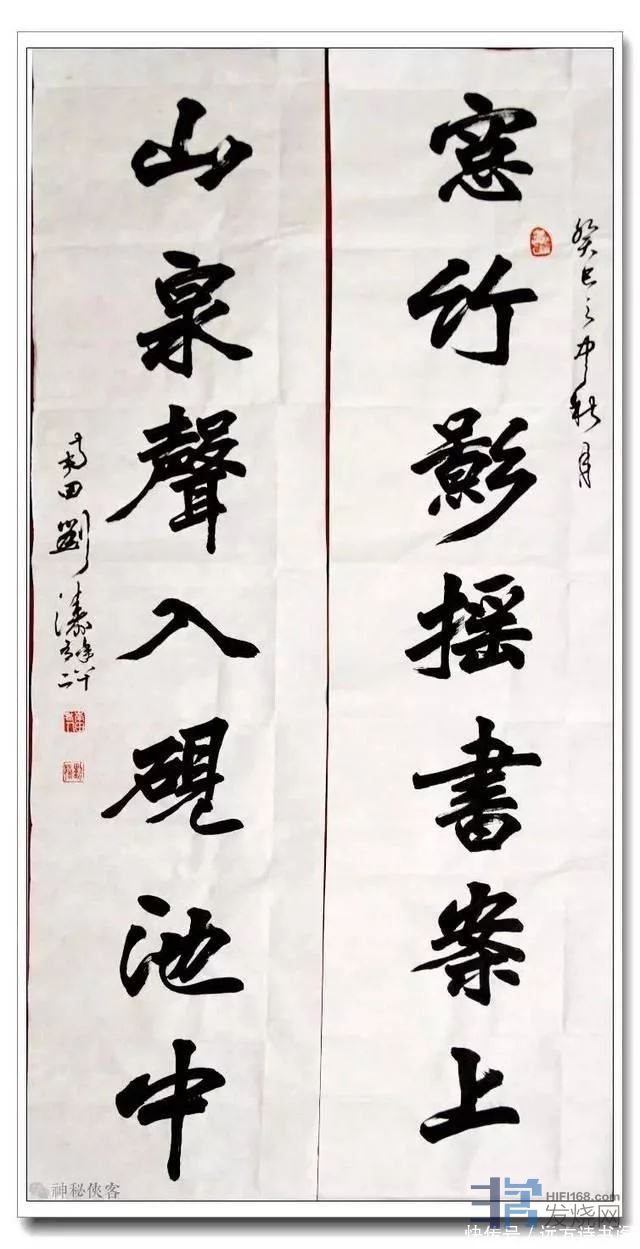 癸巳之中秋月
窓竹影摇書案上
山泉聲入硯池中
田劉
神秘侠客
HIFI168.com
发烧网
快传号